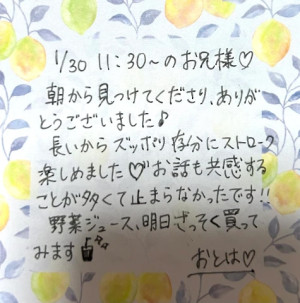 1/30 11:30～のお兄様♡
朝から見つけてくださり、ありが
とうございました♪
長いからズッポリ存分にストローク
楽しめました♡お話も共感する
ことが多くて止まらなかったです!!
野菜ジュース、明日さっそく買って
みます
おとは♡